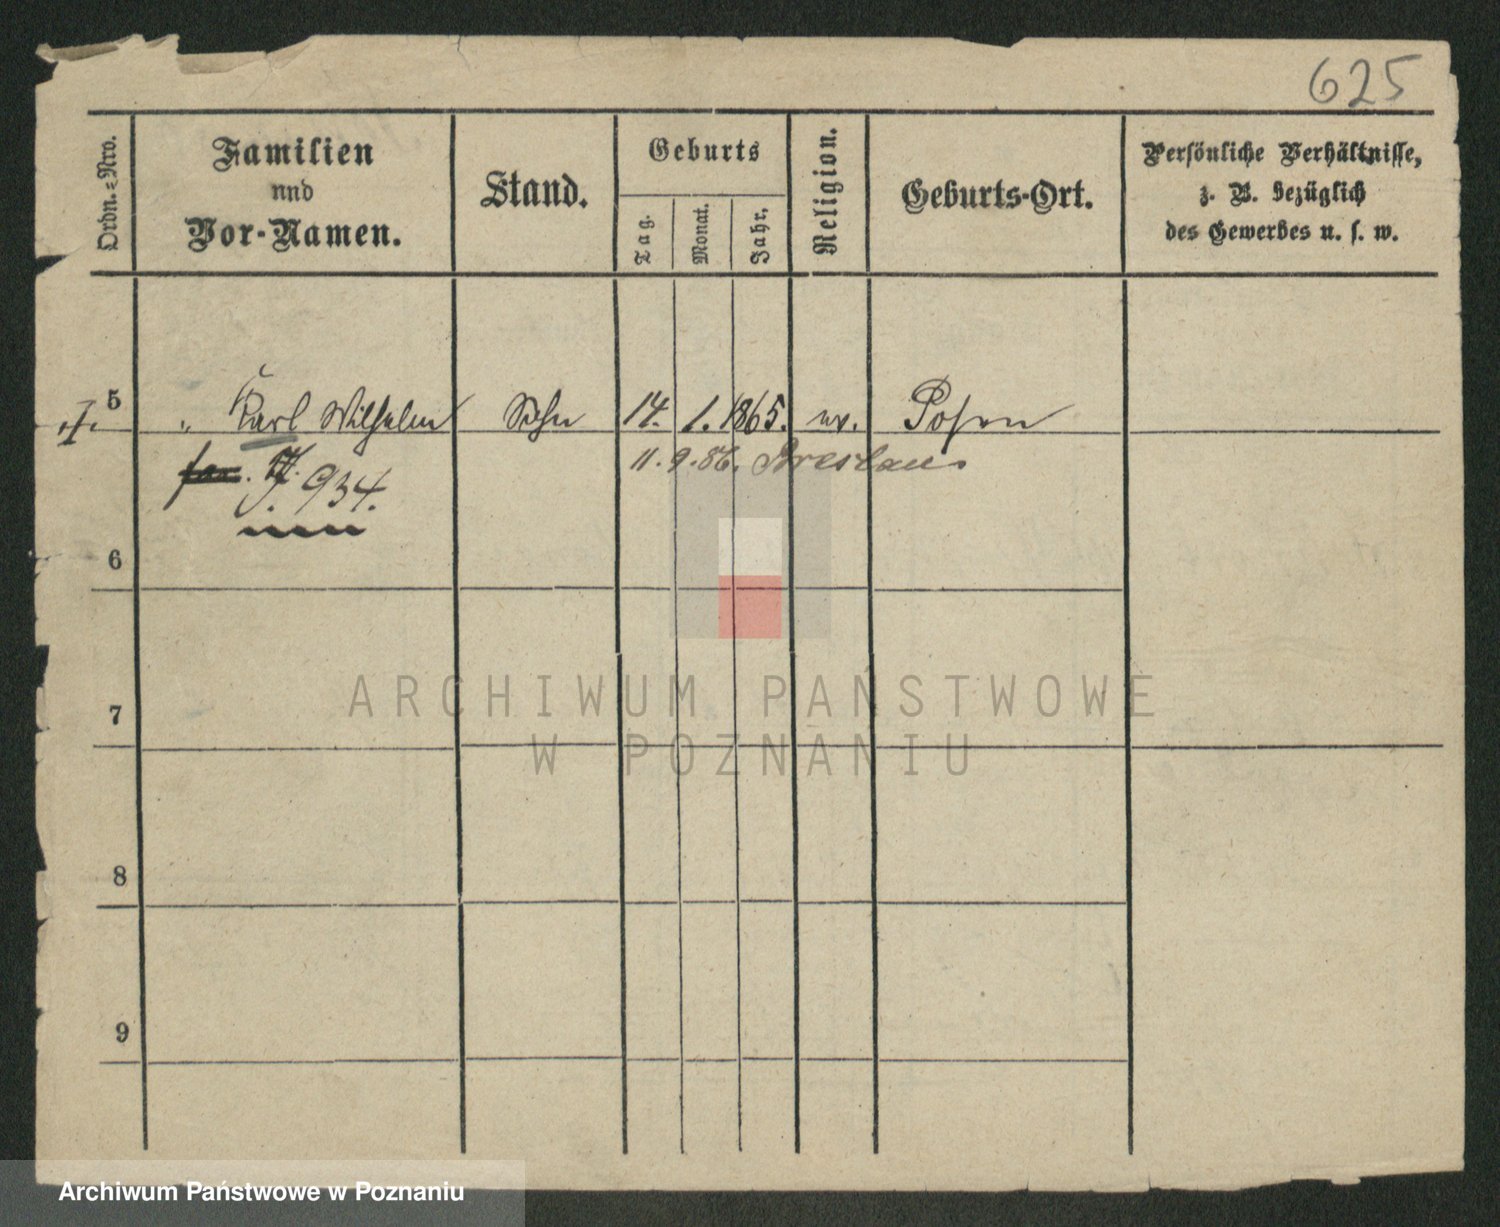 625
Ordn.=Nro.
Familien
und
Vor-Namen.
Stand.
Geburts
Tag.
Monat.
Jahr.
Religion.
Geburts-Ort.
Persönliche Verhältnisse,
z. B. bezüglich
des Gewerbes u. s. w.
5
" Karl Wilhelm Sohn 14. 1. 1865. ev. Posen
11. 9. 86. Breslau
J. 934.
6
7
8
9
ARCHIWUM PAŃSTWOWE
W POZNANIU
Archiwum Państwowe w Poznaniu